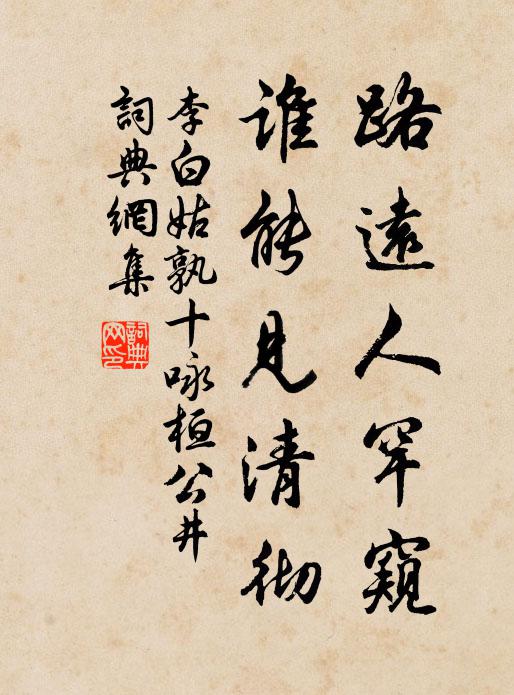 路遠人罕窺
誰能見清彻
李白姑孰十咏桓公井
詞典網集
詞典网印